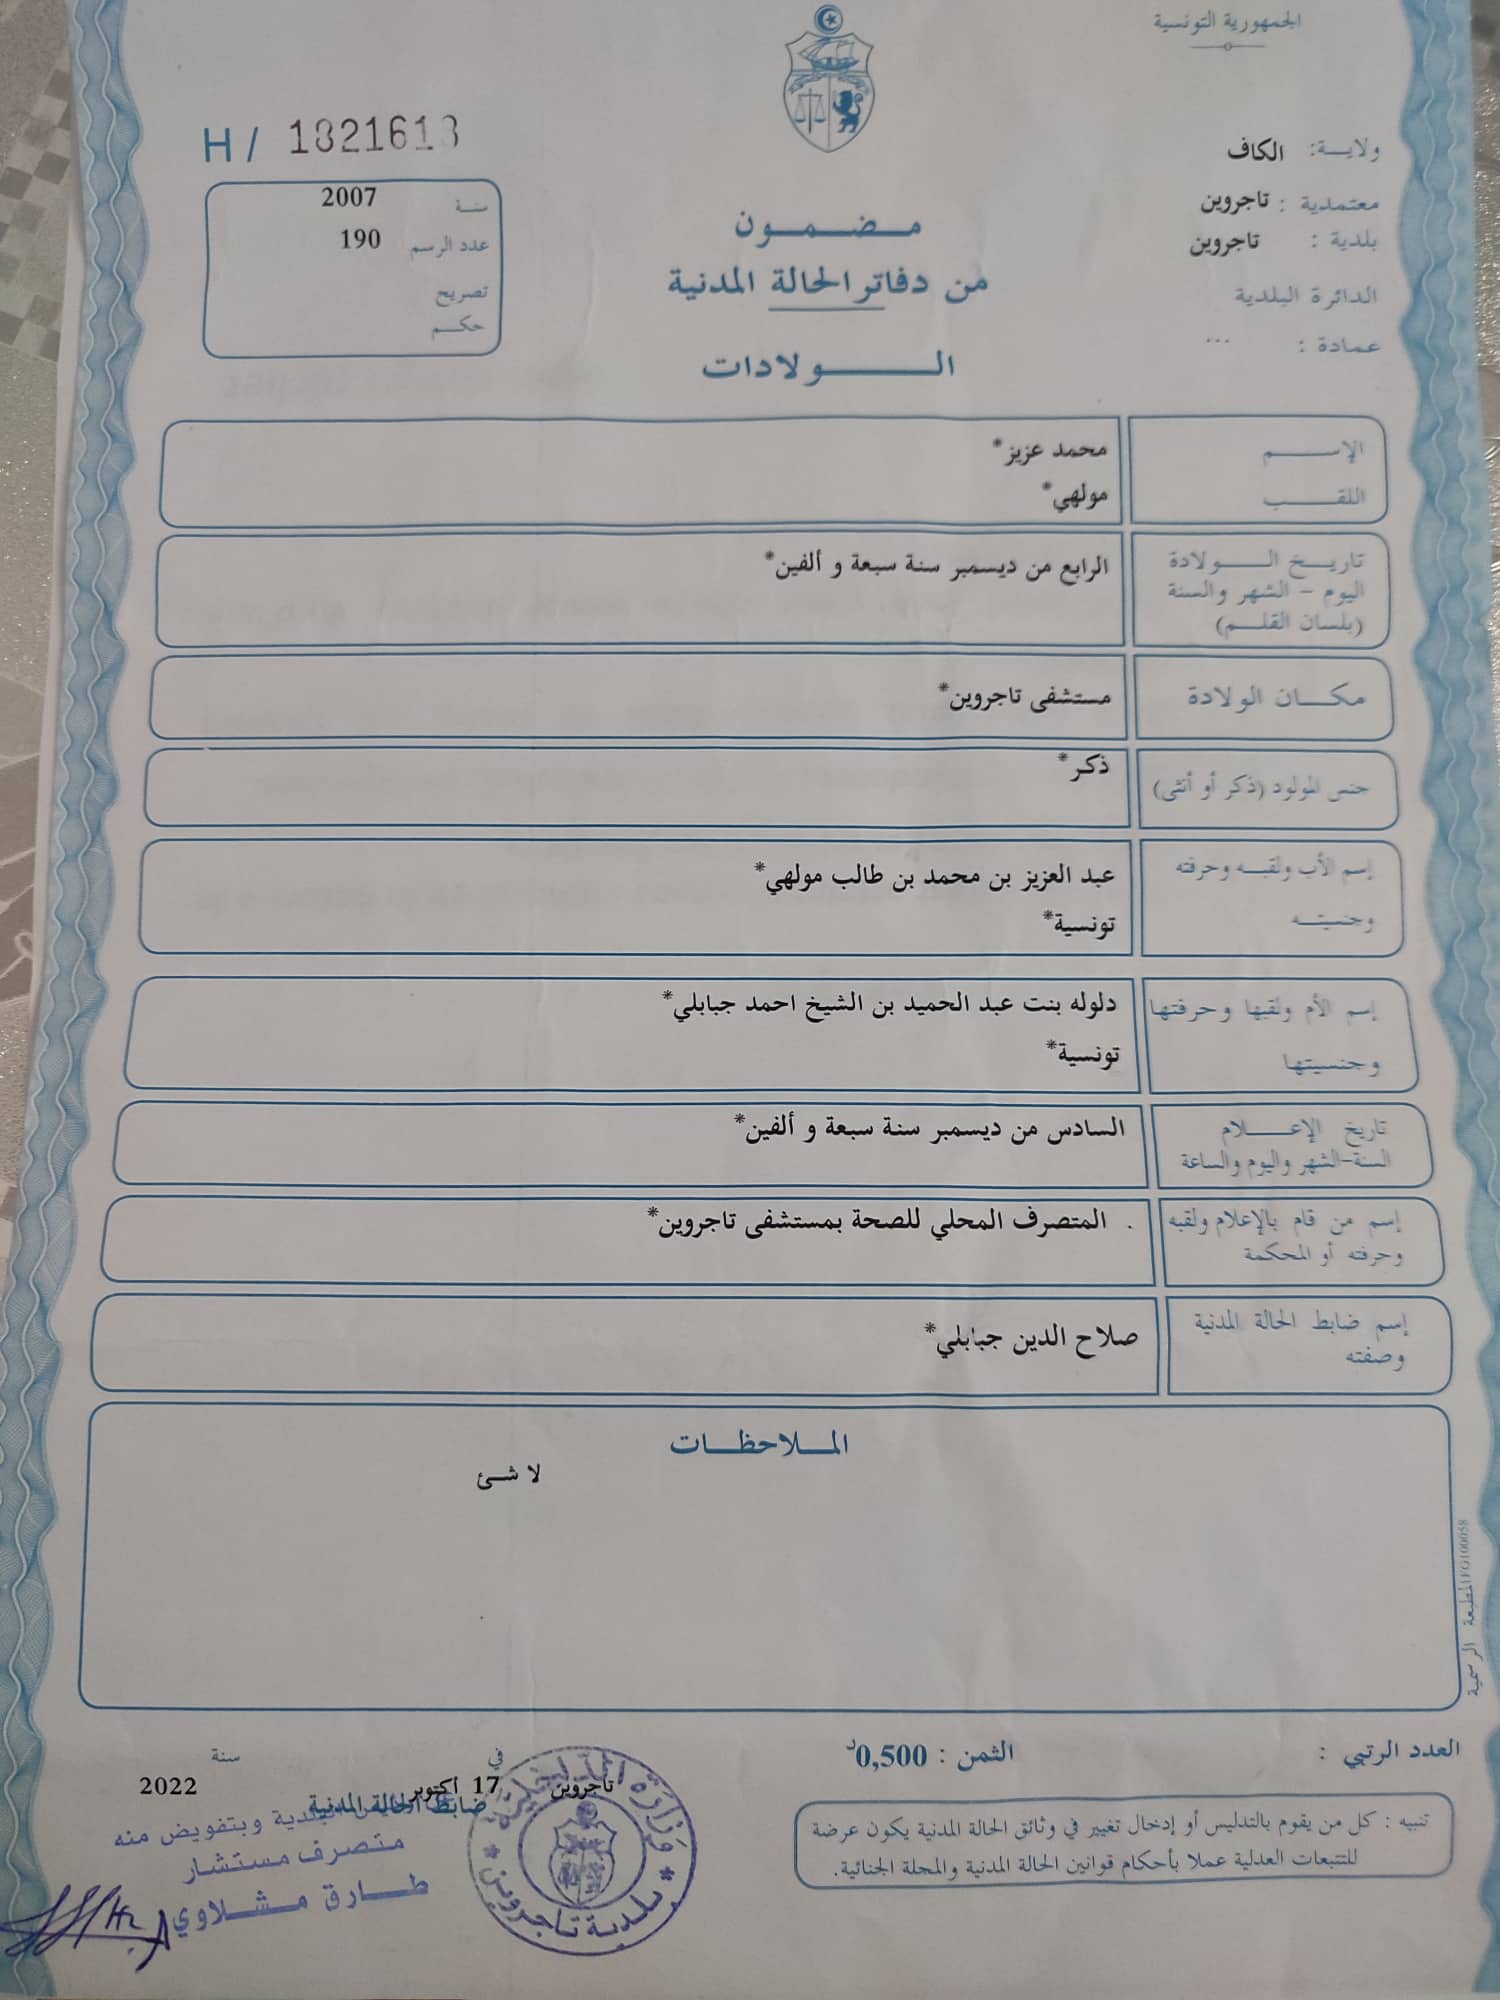 الجمهورية التونسية
ولايـــة: الكاف
معتمدية : تاجروين
بلدية : تاجروين
الدائرة البلدية
عمادة : ...
H / 1821618
سنـة 2007
عدد الرسم 190
تصريح
حكـم
مـضـمـون
من دفاتر الحالة المدنية
الـولادات
الإسـم محمد عزيز*
اللقـب مولهي*
تاريـخ الـولادة
اليوم - الشهر والسنة
(بلسان القلـم)
الرابع من ديسمبر سنة سبعة و ألفين*
مكـان الولادة مستشفى تاجروين*
جنس المولود (ذكر أو أنثى) ذكر*
إسم الأب ولقبـه وحرفته عبد العزيز بن محمد بن طالب مولهي*
وجنسيتـه تونسية*
إسم الأم ولقبها وحرفتها دلوله بنت عبد الحميد بن الشيخ احمد جبابلي*
وجنسيتها تونسية*
تاريخ الإعـلام السادس من ديسمبر سنة سبعة و ألفين*
السنة-الشهر واليوم والساعة
إسم من قام بالإعلام ولقبه . المتصرف المحلي للصحة بمستشفى تاجروين*
وحرفته أو المحكمة
إسم ضابط الحالة المدنية صلاح الدين جبابلي*
وصفته
الملاحظـات
لا شئ
المطبعة الرسمية
العدد الرتبي :
الثمن : 0,500د
تنبيه : كل من يقوم بالتدليس أو إدخال تغيير في وثائق الحالة المدنية يكون عرضة
للتتبعات العدلية عملا بأحكام قوانين الحالة المدنية والمجلة الجنائية.
تاجروين في 17 أكتوبر سنة 2022
ضابط الحالة المدنية
البلدية وبتفويض منه
متصرف مستشار
طـارق مشـلاوي
وزارة الداخلية
بلدية تاجروين